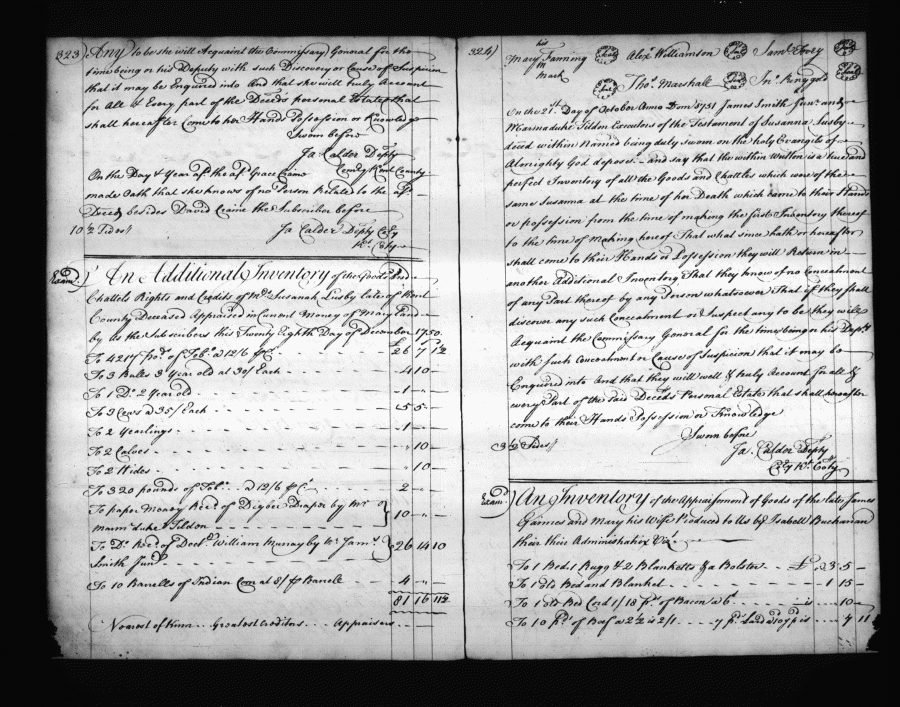 323) Any to be she will Acquaint the Commissary General for the
time being or his Deputy with such Discovery or Cause of Suspicion
that it may be Enquired into And that she will truly Account
for All & Every part of the Deceds personal Estate that
shall hereafter Come to her Hands Possession or Knowledge
Sworn before
Ja Calder Depty
Com: Kent County
On the Day & Year afd. afd. Grace Caine
made Oath that she knows of no Person Relate to the afd.
Deced besides David Craine the Subscriber before
10½ Sides//
Ja Calder Depty Cosy
Kt. Coty
Examd. An Additional Inventory of the Goods and
Chattels Rights and Credits of Mrs. Susanah Lusby late of Kent
County Deceased Appraised in Current Money of Maryland
by us the Subscribers this Twenty Eighth Day of December 1750.
To 4217 pds. of Tobo. a 12/6 £ 26 7 1½
To 3 Bulls 3 Year old at 30/ Each 4 10
To 1 Do. 2 Year old 1
To 3 Cows a 35/ Each 5 5
To 2 Yearlings 1
To 2 Calves 10
To 2 Hides 10
To 320 pounds of Tobo. a 12/6 2
To paper Money Recd. of Digbee Draper by Mr
Marm duke Tildon 10
To Do. Recd. of Doctr. William Murray by Mr. Jams.
Smith Junr. 26 14 10
To 10 Barrells of Indian Corn at 8/ Barrele 4
81 16 11½
Nearest of Kinn Greatest Creditors Appraisers
324)
his
Mary Fanning Alexr. Williamson Saml. Ebery
mark
Thos. Marshall Jno. Ringgold
On the 21st. Day of October Anno Dom 1751 James Smith Junr. and
Marmaduke Tildon Executors of the Testament of Susanna Lusby
deced within Named being duly sworn on the holy Evangels of
Almighty God depose and say that the within Written is a true and
perfect Inventory of all the Goods and Chattles which were of the
same Susanna at the time of her Death which came to their Hands
or possession from the time of making the first Inventory thereof
to the time of making hereof That what since hath or hereafter
shall come to their Hands or Possession they will Return in
another Additional Inventory That they know of no Concealment
of any Part thereof by any Person whatsoever That if they shall
discover any such Concealment or Suspect any to be they will
Acquaint the Commissary General for the time being or his Depty
with such Concealment or Cause of Suspicion that it may be
Enquired into And that they will well & truly Account for all &
every Part of the said Deceds Personal Estate that shall hereafter
come to their Hands Possession or Knowledge
Sworn before
3½ Sides//
Ja. Calder Depty
Cosy Kt. Coty
Examd. An Inventory of the Appraisment of Goods of the late James
Gaimes and Mary his Wife Produced to Us by Isabell Buchanan
their their Administratrix Viz
To 1 Bed 1 Rugg & 2 Blanketts & a Bolster £ 3 5
To 1 old Bed and Blanket 1 15
To 1 old Bed Cord 1/ 18 pd. of Bacon a 6d. is 10
To 10 pd. of Beef a 2½ is 2/1 7 pd. Lard a 10 p is 7 11